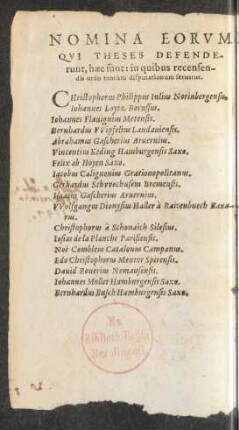 NOMINA EORVM
QVI THESES DEFENDE-
runt, hæc sunt: in quibus recensen-
dis ordo tantum disputationum seruatur.
Christophorus Philippus Iulius Norinbergensis.
Iohannes Loyte, Borussus.
Iohannes Flauignius Metensis.
Bernhardus VVipfelius Landauiensis.
Abrahamus Gascherius Aruernius.
Vincentius Keding Hamburgensis Saxo.
Felix ab Hoyen Saxo.
Iacobus Calignonius Gratianopolitanus.
Gerhardus Schrvechusen Bremensis.
Isaacus Gascherius Aruernius.
VVolfgangus Dionysius Haller à Raitenbuech Baua-
rus.
Christophorus à Schonaich Silesius.
Iosias de la Planche Parisiensis.
Noë Comblenc Catalaunus Campanus.
Edo Christophorus Mentor Spirensis.
Dauid Rouerius Nemausensis.
Iohannes Moller Hamburgensis Saxo.
Bernhardus Busch Hamburgensis Saxo.
Ex
Biblioth. Regia
Berolinensi.